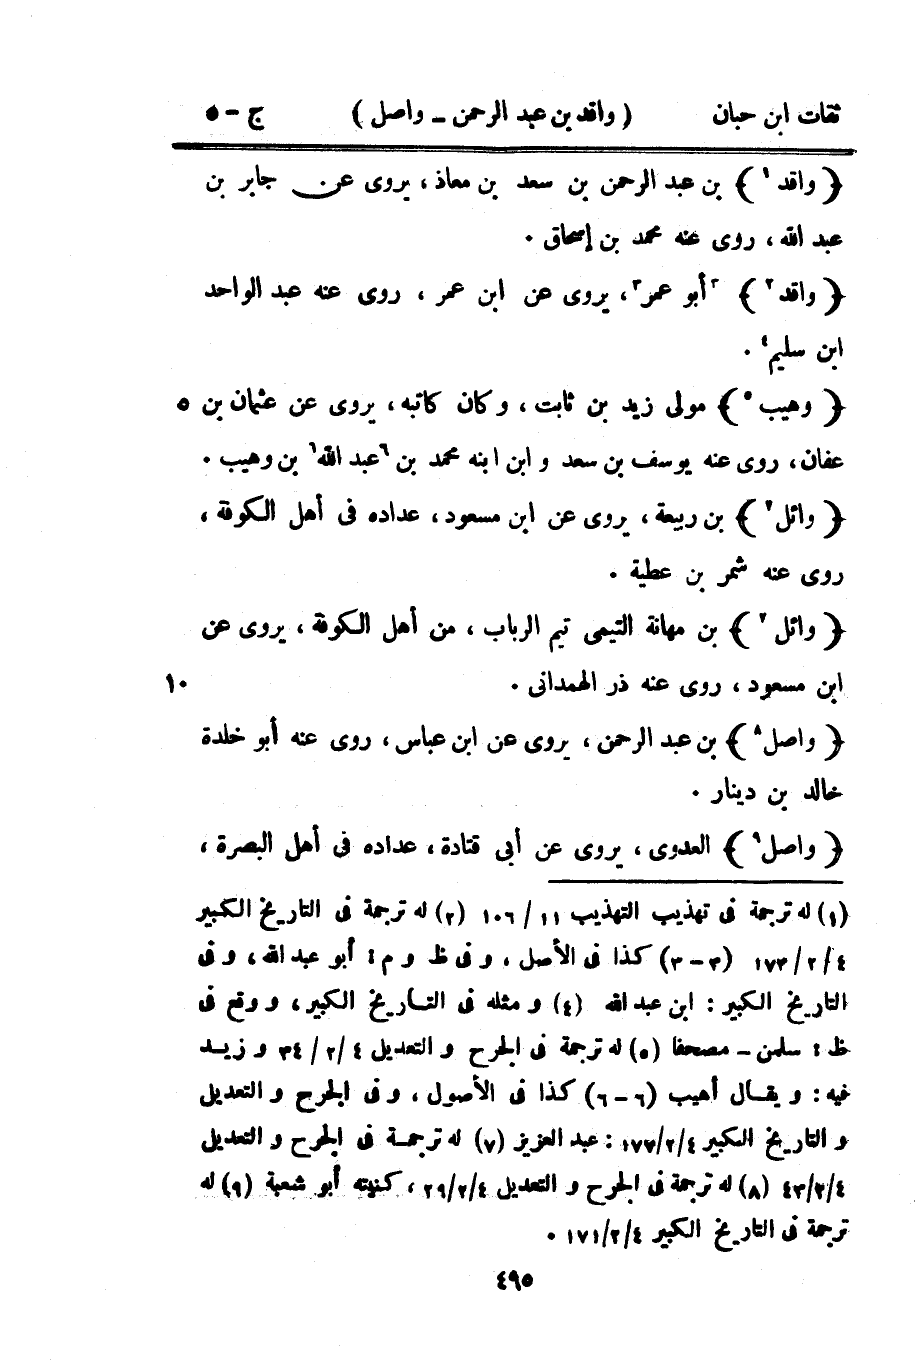 ثقات ابن حبان ( واقد بن عبد الرحمن – واصل ) ج – ٥
﴿ واقد ١ ﴾ بن عبد الرحمن بن سعد بن معاذ ، يروى عن جابر بن
عبد الله ، روى عنه محمد بن إسحاق .
﴿ واقد ٢ ﴾ ٣أبو عمر٣، يروى عن ابن عمر ، روى عنه عبد الواحد
ابن سليم٤ .
﴿ وهيب ٥ ﴾ مولى زيد بن ثابت ، وكان كاتبه ، يروى عن عثمان بن ٥
عفان ، روى عنه يوسف بن سعد و ابن ابنه محمد بن ٦عبد الله٦ بن وهيب .
﴿ وائل ٧ ﴾ بن ربيعة ، يروى عن ابن مسعود ، عداده فى أهل الكوفة ،
روى عنه شمر بن عطية .
﴿ وائل ٧ ﴾ بن مهانة التيمى تيم الرباب ، من أهل الكوفة ، يروى عن
ابن مسعود ، روى عنه ذر الهمدانى . ١٠
﴿ واصل ٨ ﴾ بن عبد الرحمن ، يروى عن ابن عباس ، روى عنه أبو خلدة
خالد بن دينار .
﴿ واصل ٩ ﴾ العدوى ، يروى عن أبى قتادة ، عداده فى أهل البصرة ،
(١) له ترجمة فى تهذيب التهذيب ١١ / ١٠٦ (٢) له ترجمة فى التاريخ الكبير
٤ / ٢ / ١٧٣ (٣ – ٣) كذا فى الأصل ، و فى ظ و م : أبو عبد الله ، و فى
التاريخ الكبير : ابن عبد الله (٤) و مثله فى التاريخ الكبير ، و وقع فى
ظ : سلمن – مصحفا (٥) له ترجمة فى الجرح و التعديل ٤ / ٢ / ٣٤ و زيد
فيه : و يقال أهيب (٦ – ٦) كذا فى الأصول ، و فى الجرح و التعديل
و التاريخ الكبير ٤/٢/١٧٧ : عبد العزيز (٧) له ترجمة فى الجرح و التعديل
٤/٢/٤٣ (٨) له ترجمة فى الجرح و التعديل ٤/٢/٢٩ ، كنيته أبو شعبة (٩) له
ترجمة فى التاريخ الكبير ٤/٢/١٧١ .
٤٩٥